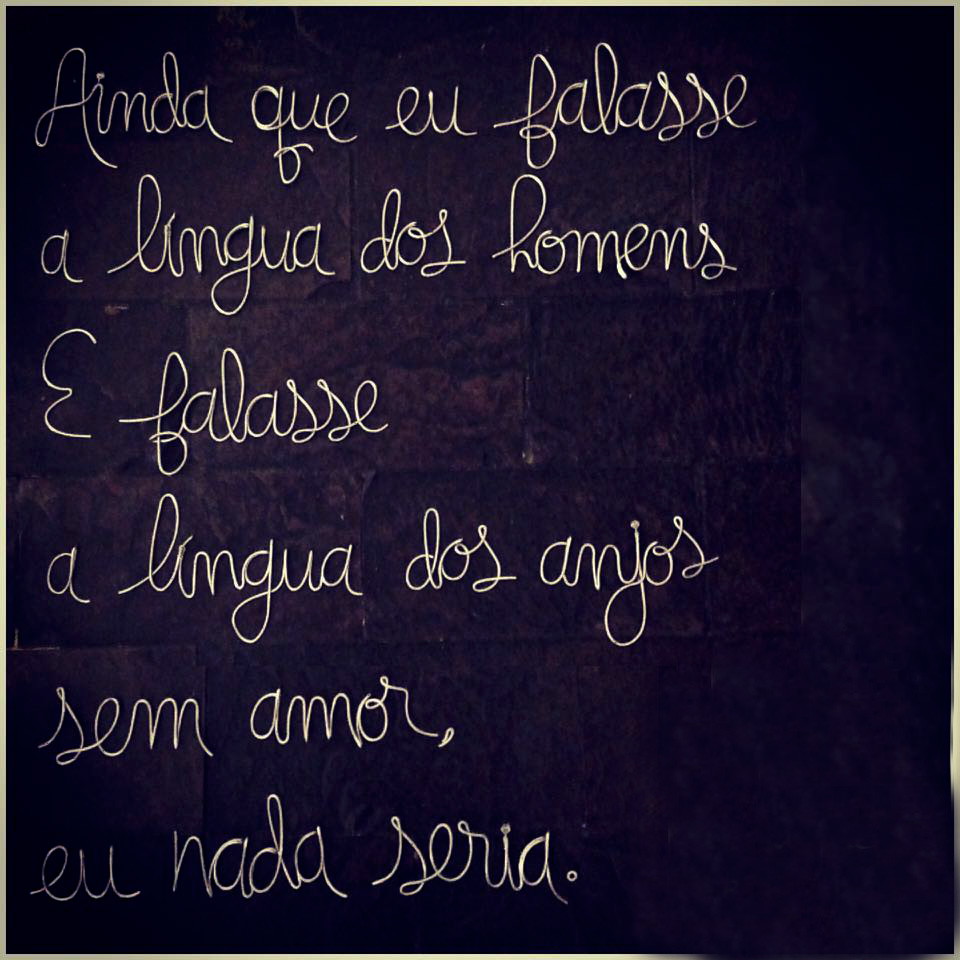 Ainda que eu falasse
a língua dos homens
E falasse
a língua dos anjos
sem amor,
eu nada seria.